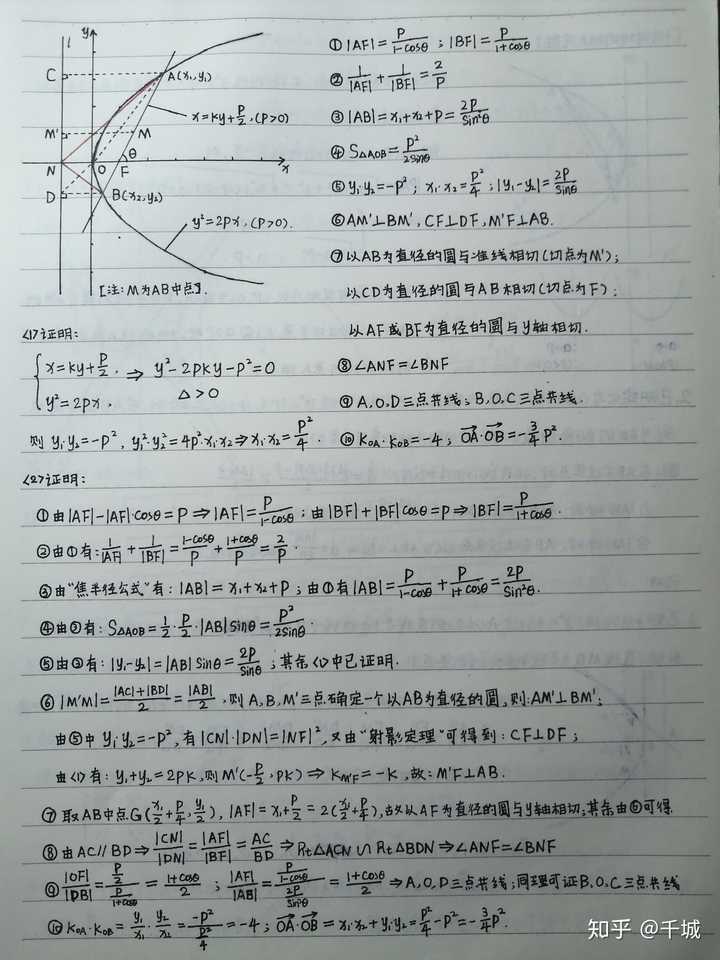 l
y
C
A(x₁,y₁)
x=ky+p/2,(p>0)
M'
M
θ
N
O
F
x
D
B(x₂,y₂)
y²=2px,(p>0).
[注:M为AB中点]
①|AF|=p/(1-cosθ);|BF|=p/(1+cosθ)
②1/|AF|+1/|BF|=2/p
③|AB|=x₁+x₂+p=2p/sin²θ
④S△AOB=p²/2sinθ
⑤y₁·y₂=-p²;x₁·x₂=p²/4;|y₁-y₂|=2p/sinθ
⑥AM'⊥BM',CF⊥DF,M'F⊥AB.
⑦以AB为直径的圆与准线相切(切点为M');
以CD为直径的圆与AB相切(切点为F);
以AF或BF为直径的圆与y轴相切.
⑧∠ANF=∠BNF
⑨A,O,D三点共线;B,O,C三点共线.
⑩K_OA·K_OB=-4;OA·OB=-3/4p².
<1>证明:
{x=ky+p/2, ⇒ y²-2pky-p²=0
y²=2px, △>0
则 y₁·y₂=-p²,y₁²·y₂²=4p²·x₁·x₂⇒x₁·x₂=p²/4.
<2>证明:
①由|AF|-|AF|·cosθ=p⇒|AF|=p/(1-cosθ);由|BF|+|BF|cosθ=p⇒|BF|=p/(1+cosθ).
②由①有:1/|AF|+1/|BF|=(1-cosθ)/p+(1+cosθ)/p=2/p.
③由“焦半径公式”有:|AB|=x₁+x₂+p;由①有|AB|=p/(1-cosθ)+p/(1+cosθ)=2p/sin²θ.
④由③有:S△AOB=1/2·p/2·|AB|sinθ=p²/2sinθ.
⑤由③有:|y₁-y₂|=|AB|sinθ=2p/sinθ;其余<1>中已证明.
⑥|M'M|=(|AC|+|BD|)/2=|AB|/2,则A,B,M'三点确定一个以AB为直径的圆,则:AM'⊥BM';
由⑤中y₁·y₂=-p²,有|CN|·|DN|=|NF|²,又由“射影定理”可得到:CF⊥DF;
由<1>有:y₁+y₂=2pk,则M'(-p/2,pk)⇒K_M'F=-k,故:M'F⊥AB.
⑦取AB中点G(x₁/2+p/4,y₁/2),|AF|=x₁+p/2=2(x₁/2+p/4),故以AF为直径的圆与y轴相切;其余由⑥可得.
⑧由AC//BD⇒|CN|/|DN|=|AF|/|BF|=AC/BD⇒Rt△ACN∽Rt△BDN⇒∠ANF=∠BNF
⑨|OF|/|DB|=(p/2)/(p/(1+cosθ))=(1+cosθ)/2;|AF|/|AB|=(p/(1-cosθ))/(2p/sin²θ)=(1+cosθ)/2⇒A,O,D三点共线;同理可证B,O,C三点共线
⑩K_OA·K_OB=y₁/x₁·y₂/x₂=-p²/(p²/4)=-4;OA·OB=x₁·x₂+y₁·y₂=p²/4-p²=-3/4p².
知乎 @千城